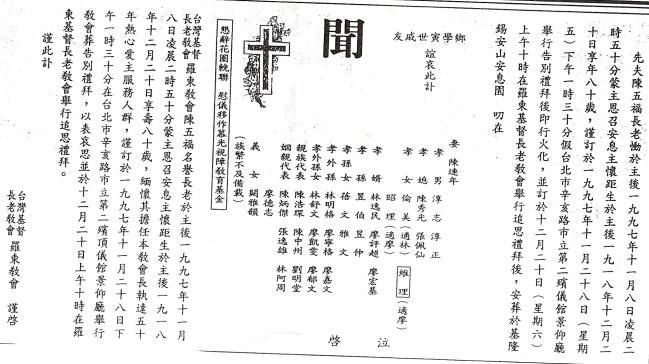 先夫陳五福長老慟於主後一九九七年十一月八日凌晨二
時五十分蒙主恩召安息主懷距生於主後一九一八年十二月二
十日享年八十歲，謹訂於一九九七年十一月二十八日（星期
五）下午一時三十分假台北市辛亥路市立第二殯儀館景仰廳
舉行告別禮拜後即行火化，並訂於十二月二十日（星期六）
上午十時在羅東基督長老教會舉行追思禮拜後，安葬於基隆
錫安山安息園　叨在
鄉學寅世戚友
誼哀此訃
聞
妻 陳連年
孝男 淳志 淳正
孝媳 陳秀光 張佩仙
孝女 倫美（適林） 維理（適廖）
昭理（適廖）
孝婿 林逸民 廖評超 廖宏基
孝孫 昱伯 昱仲
孝孫女 蓓文 雅文
孝外孫 林明格 廖寧格 廖嘉文
孝外孫女 林舒文 廖凱雯 廖郁文
親族代表 陳浩琛 陳中州 劉明堂
姻親代表 陳炳傑 張逸雄 林阿周
廖德志
義女 闕雅韻
（族繁不及備載）
泣啓
懇辭花圈輓聯　慰儀移作慕光視障教育基金
台灣基督
長老教會 羅東教會陳五福名譽長老於主後一九九七年十一月
八日凌晨二時五十分蒙主恩召安息主懷距生於主後一九一八
年十二月二十日享壽八十歲，緬懷其擔任本教會長執達五十
年熱心愛主服務人群，謹訂於一九九七年十一月二十八日下
午一時三十分在台北市辛亥路市立第二殯儀館景仰廳舉行
教會葬告別禮拜，以表哀思並於十二月二十日上午十時在羅
東基督長老教會舉行追思禮拜。
謹此訃
台灣基督
長老教會 羅東教會 謹啓